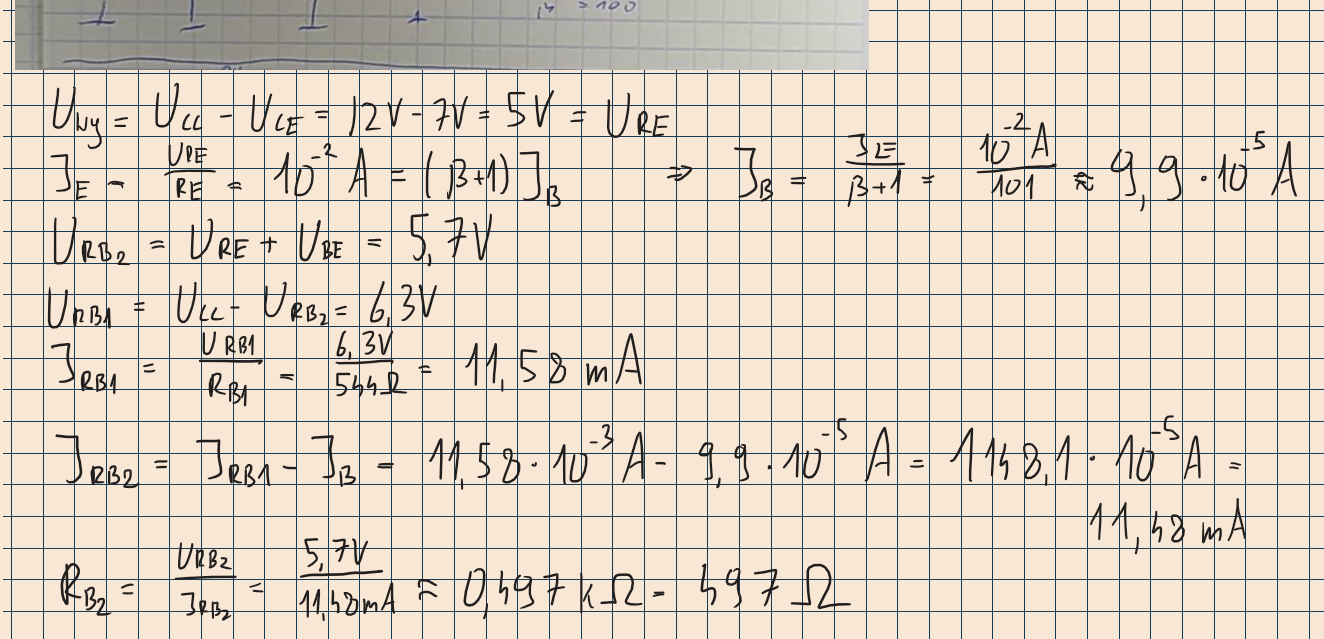 β = 100
U_Wy = U_CC - U_CE = 12V - 7V = 5V = U_RE
I_E = U_RE/RE = 10^-2 A = (β+1) I_B ⇒ I_B = I_E/β+1 = 10^-2 A/101 ≈ 9,9 · 10^-5 A
U_RB2 = U_RE + U_BE = 5,7V
U_RB1 = U_CC - U_RB2 = 6,3V
I_RB1 = U_RB1/R_B1 = 6,3V/544Ω = 11,58 mA
I_RB2 = I_RB1 - I_B = 11,58 · 10^-3 A - 9,9 · 10^-5 A = 1148,1 · 10^-5 A =
11,48 mA
R_B2 = U_RB2/I_RB2 = 5,7V/11,48mA ≈ 0,497 kΩ = 497 Ω